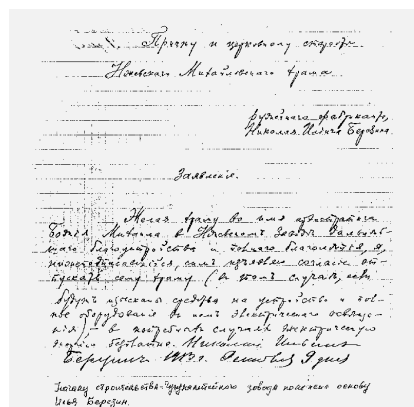 Причту и церковному старосте
Ижевскаго Михайловскаго храма
оружейнаго фабриканта,
Николая Ильича Березина.
Заявленіе.
Желая храму во имя архистратига
Божія Михаила в Ижевском заводе дальней-
шаго благоустройства и полнаго благолепія, я,
нижеподписавшійся, сим изъявляю согласие от-
пускать сему храму (в том случае, если
будут изысканы средства на устройство и пол-
ное оборудование в нем электрическаго освеще-
ния), в потребных случаях электрическую
энергию безплатно. Николай Ильич
Березин 
Начало строительства завода положено основу
Илья Березин.